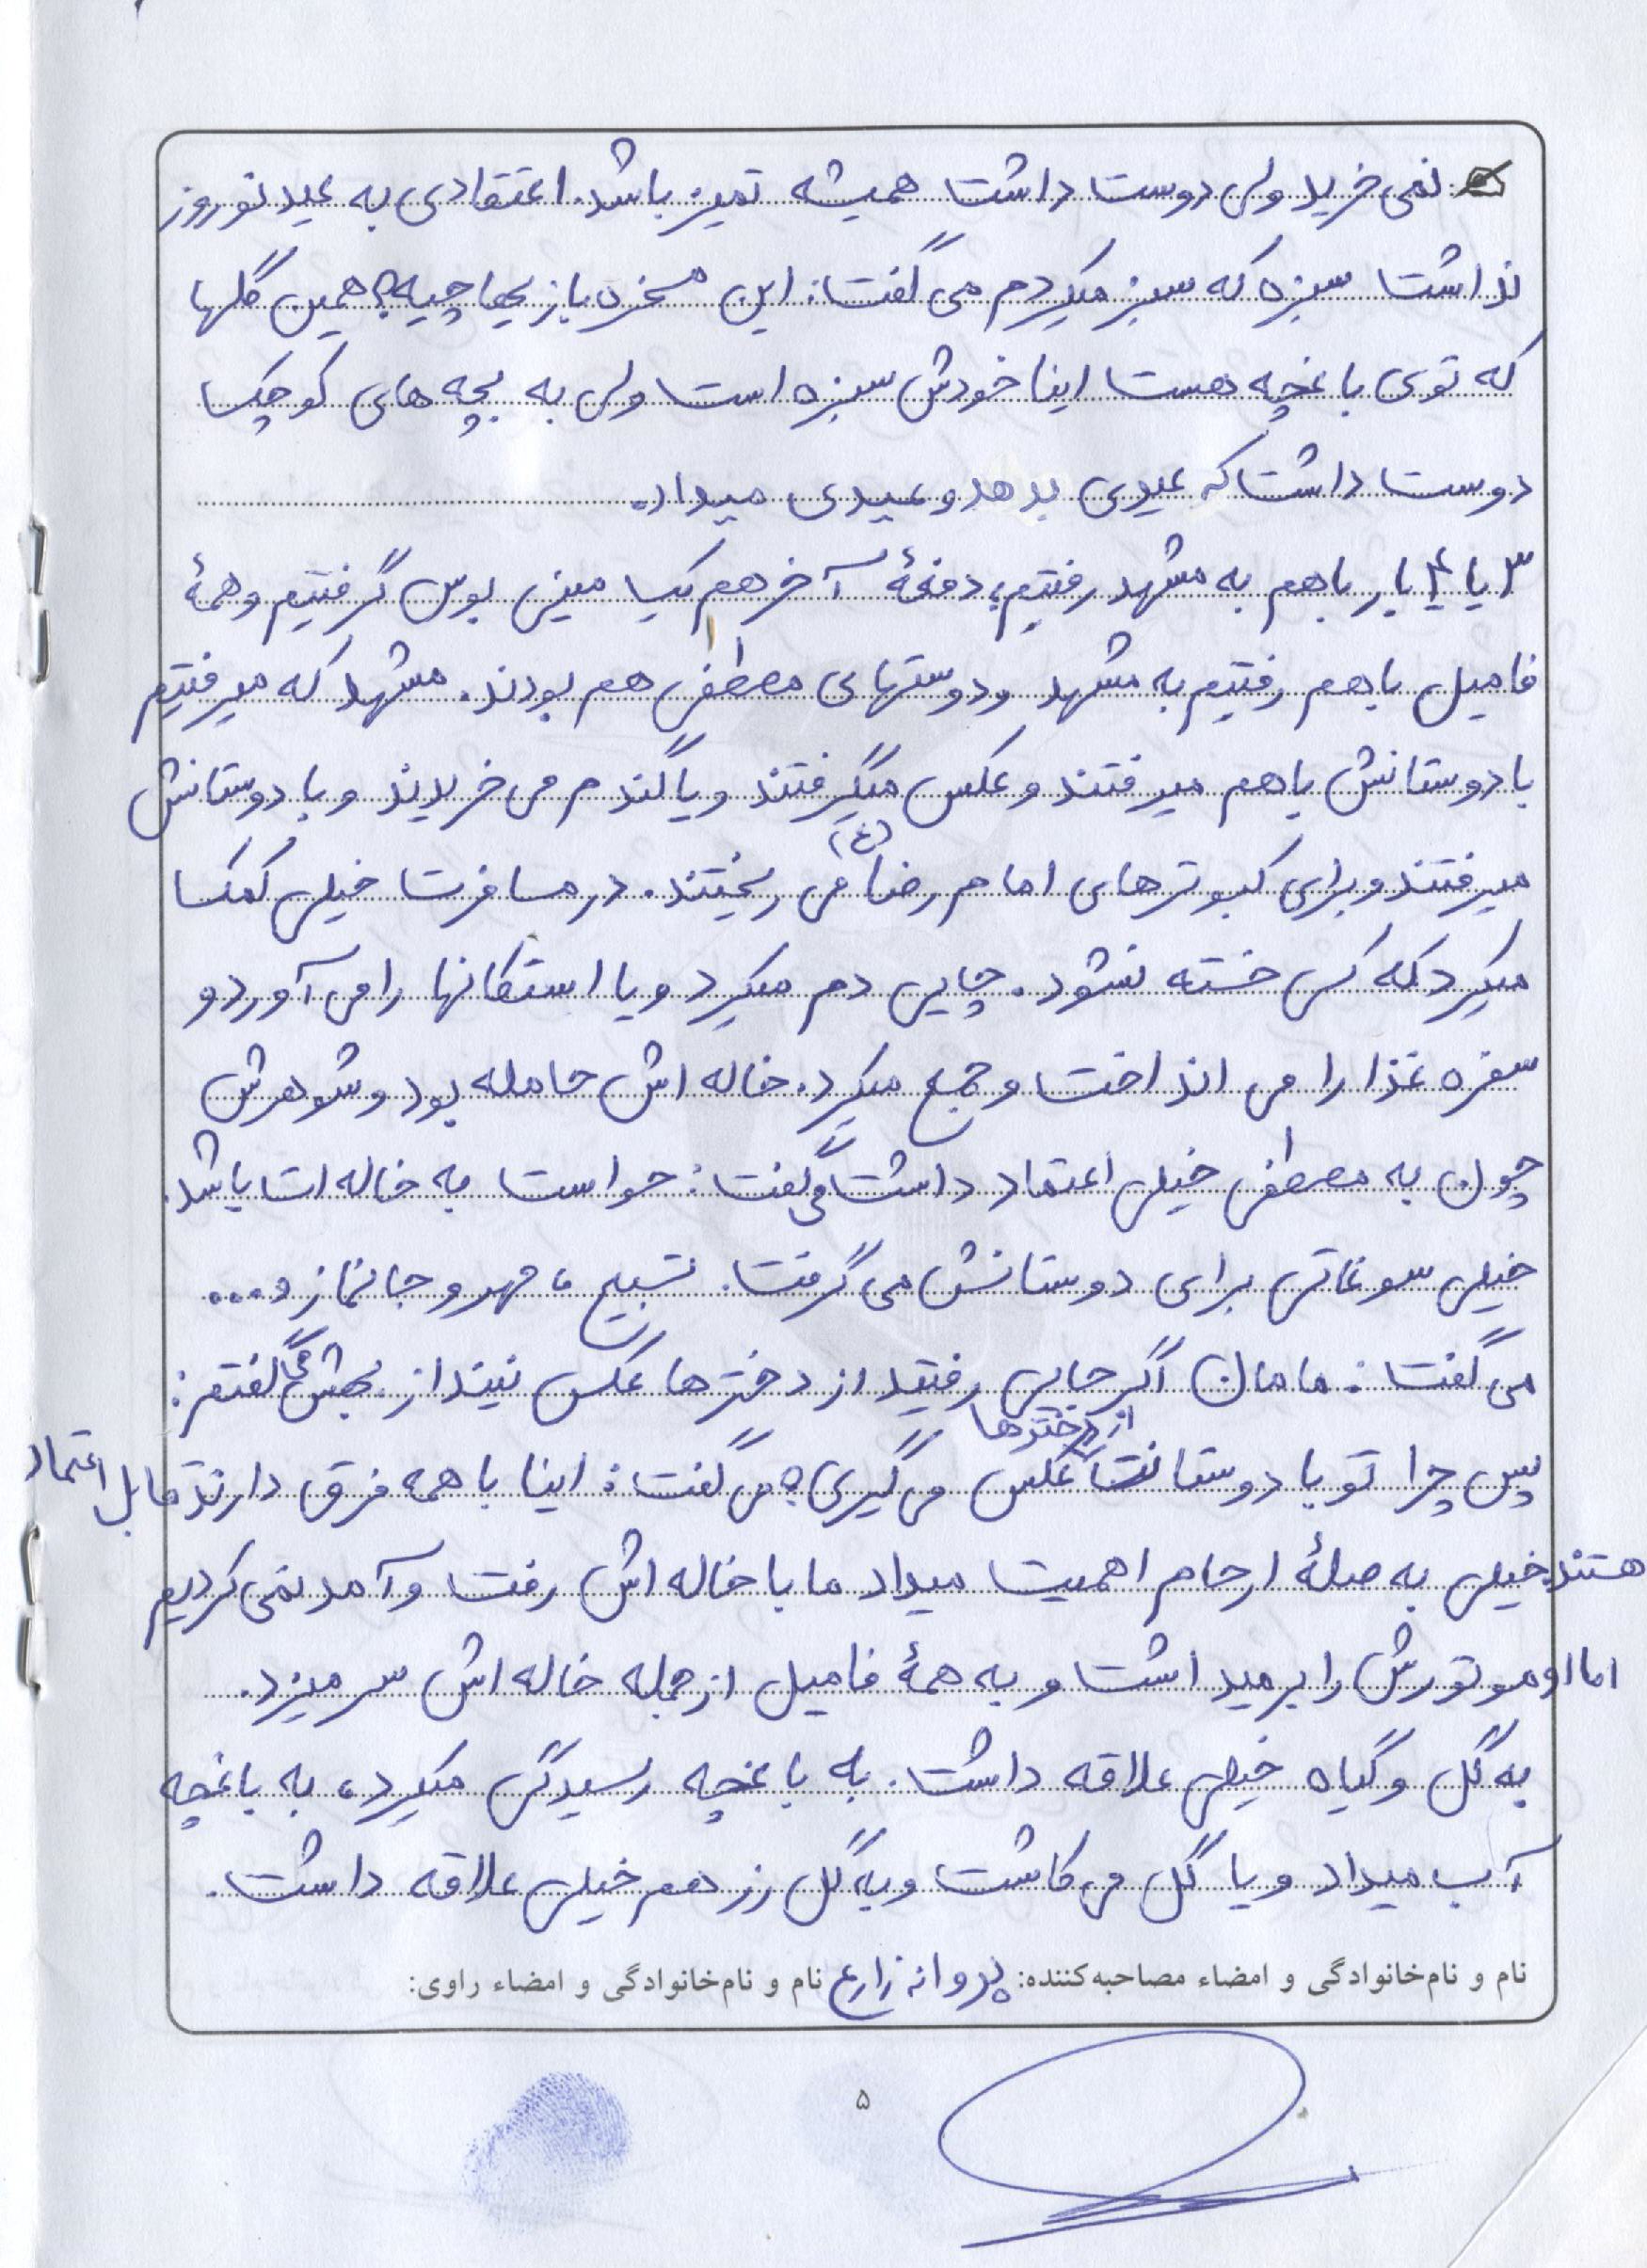 نمی خرید ولی دوست داشت همیشه تمیز باشد. اعتقادی به عید نوروز
نداشت سبزه که سبز میکردم می گفت: این مسخره بازیها چیه؟ همین گلها
که توی باغچه هست اینا خودش سبزه است ولی به بچه های کوچک
دوست داشت که عیدی بدهد و عیدی میداد.
۳ یا ۴ بار باهم به مشهد رفتیم، دفعۀ آخر هم یک مینی بوس گرفتیم و همۀ
فامیل باهم رفتیم به مشهد و دوستهای مصطفی هم بودند. مشهد که میرفتیم
با دوستانش باهم میرفتند و عکس میگرفتند و یا گندم می خریدند و با دوستانش
میرفتند و برای کبوترهای امام رضا (ع) می ریختند. در مسافرت خیلی کمک
میکرد که کسی خسته نشود. چایی دم میکرد و یا استکانها را می آورد و
سفره غذا را می انداخت و جمع میکرد. خاله اش حامله بود و شوهرش
چون به مصطفی خیلی اعتماد داشت می گفت: حواست به خاله ات باشد.
خیلی سوغاتی برای دوستانش می گرفت. تسبیح، مهر و جانماز و....
می گفت: مامان اگر جایی رفتید از دخترها عکس نینداز. بهش می گفتم:
پس چرا تو با دوستانت از دخترها عکس می گیری؟ می گفت: اینا با همه فرق دارند قابل اعتماد
هستند. خیلی به صلۀ ارحام اهمیت میداد ما با خاله اش رفت و آمد نمی کردیم
اما او موتورش را برمیداشت و به همۀ فامیل از جمله خاله اش سر میزد.
به گل و گیاه خیلی علاقه داشت. به باغچه رسیدگی میکرد، به باغچه
آب میداد و یا گل می کاشت و به گل رز هم خیلی علاقه داشت.
نام و نام‌خانوادگی و امضاء مصاحبه‌کننده: پروانه زارع نام و نام‌خانوادگی و امضاء راوی:
۵